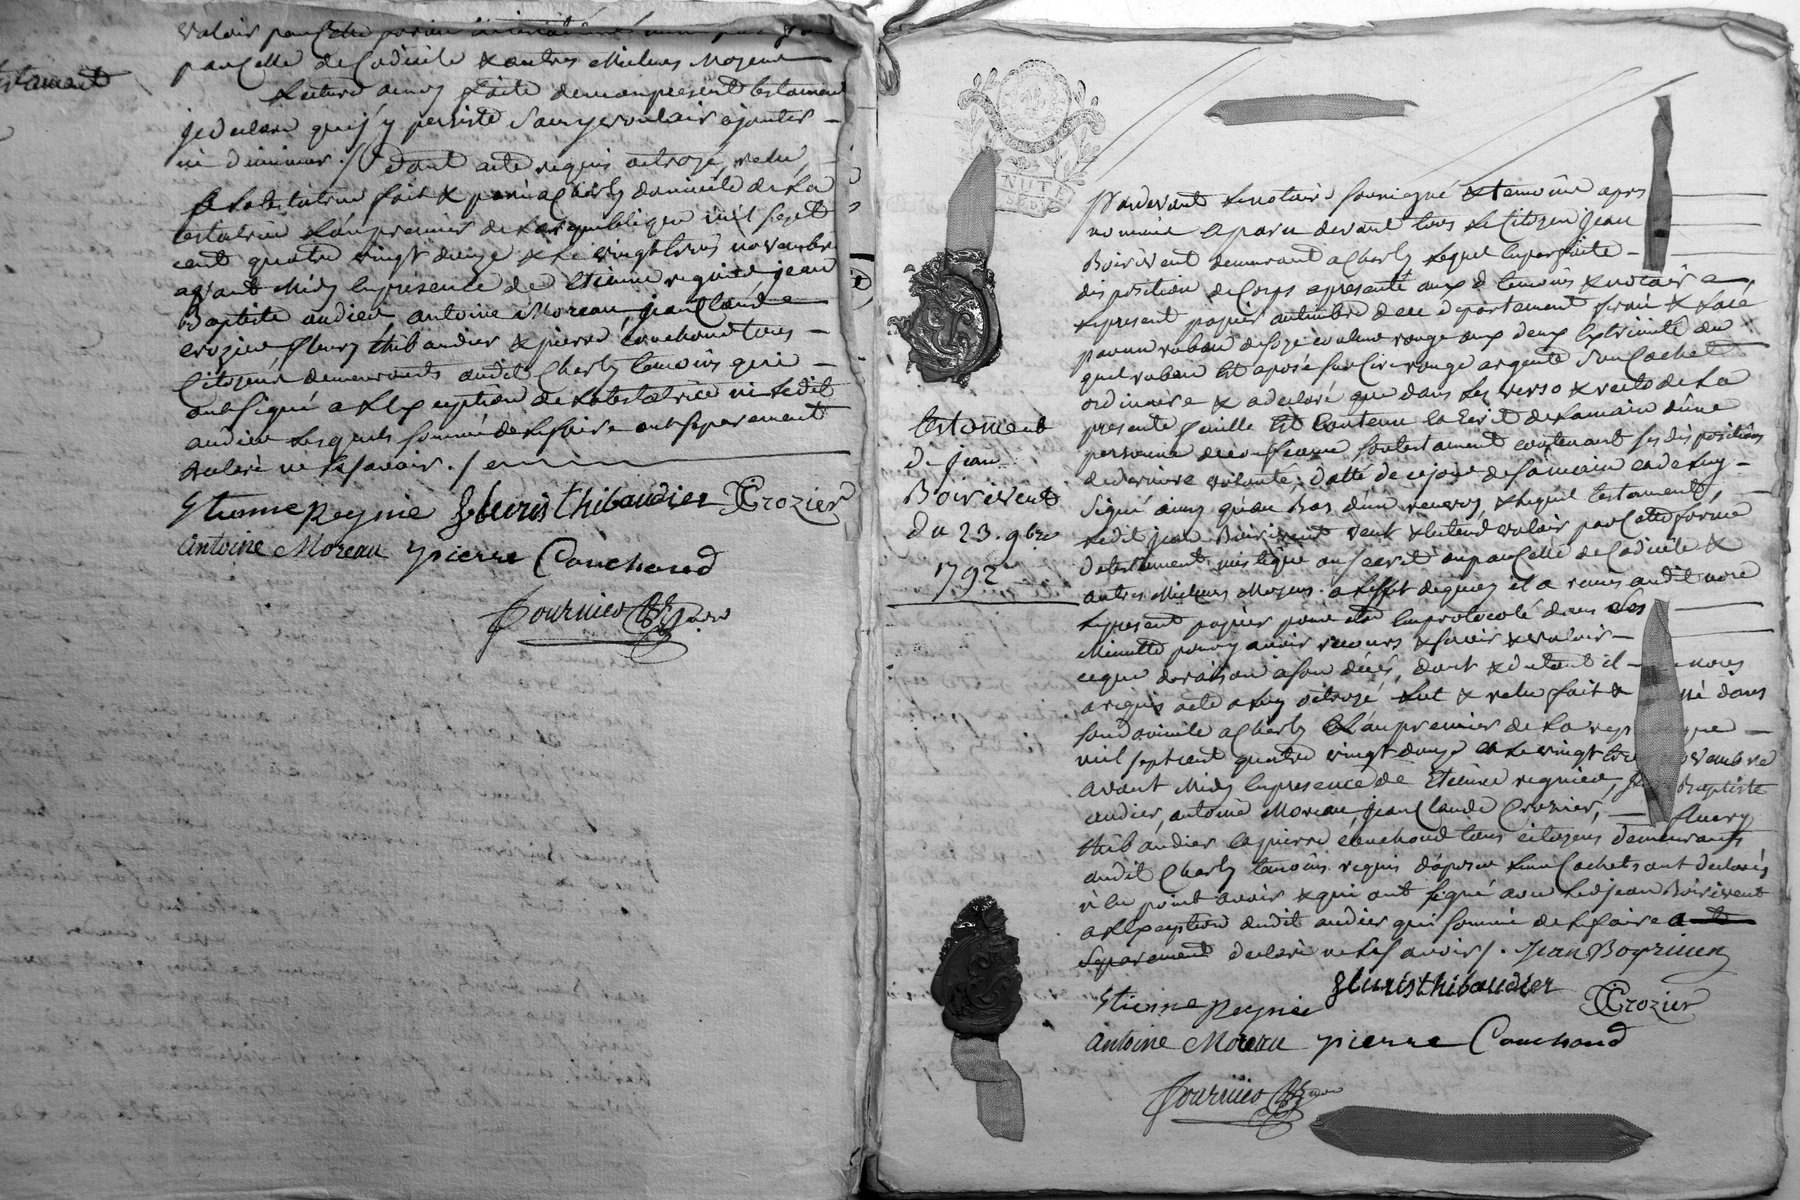 valoir par cette forme
par Celle de Codicile & autres Meilleurs Moyens
testament
Lecture amoy faite demon present testament
Jedeclare quej'y persiste Sans y vouloir ajouter
ni diminuer ./. dont acte requis octroyé, relu,
a la testatrice fait & passé a Charly domicile de la
testatrice L'an premier de la republique mil sept
cent quatre vingt douze & le vingt trois novembre
avant Midy En présence de Etienne regnie, jean
Baptiste audier antoine Moreau, jean Claude
crozier, fleury thibaudier & pierre couchoud tous
Citoyens demeurants audit Charly temoins qui
ont Signé a L'Exception de la testatrice ni ledit
audier Lesquels sommé de le faire ont separement
declaré ne le savoir ./.
Etienne Reynié fleuris thibaudier JC Crozier
Antoine Moreau pierre Couchoud
fournier
NOTE
Pardevant Le notaire soussigné & temoins apres
nommé a paru devant tous Le Citoyen jean
Boirivent demeurant a Charly Lequel En parfaite
disposition de Corps a presenté aux d temoins & notaire
Le present papier autimbre de ce departement fermé & lacé
par un ruban de soye couleur rouge aux deux Extremité du
quel ruban Est aposé sur Cire rouge argente Son Cachet
ordinaire & a declaré que dans Les verso & recto de La
presente feuille Est Contenu Ecrit de la main d'une
personne de confiance Son testament contenant Ses dispositions
de derniere volonté, datté de ce jour de sa main & de luy
Signé ainsy qu'au Bas d'un renvoy, & Lequel testament,
Ledit jean Boirivent veut & Entend valoir par Cette forme
de testament mistique ou secret ou par Celle de Codicile &
autres Meilleurs Moyens. a L'effet de quoy il a remis audit notaire
Le present papier pour etre En protocolé dans Ses
Minutte pour y avoir recours & Servir & valoir
ce que de raison a Son décés, dont & du tout il nous
a requis acte a luy octroyé Lut & relu fait & dans
Son domicile a Charly L'an premier de La
mil sept cent quatre vingt douze & Le vingt
avant Midy En presence de Etienne regnier, Baptiste
audier, antoine Moreau, jean Claude Crozier, fleury
thibaudier & pierre couchoud tous citoyens demeurants
audit Charly temoins requis d'aposer Leurs Cachets ont declarés
n'En point avoir & qui ont Signé avec Led jean Boirivent
a L'Exception dudit audier qui sommé de le faire a
separement declaré ne le savoir ./. Jean Boyriven
testament
de jean
Boirivent
du 23. 9bre
1792
Etienne Reynié fleuris thibaudier JC Crozier
Antoine Moreau pierre Couchoud
fournier